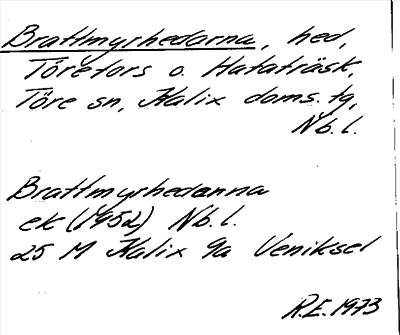 Brattmyrhedarna, hed,
Törefors o. Hataträsk,
Töre sn, Kalix doms. tg,
Nb. l.
Brattmyrhedanna
ek (1952) Nb. l.
25 M Kalix 9a Veniksel
R.E. 1973